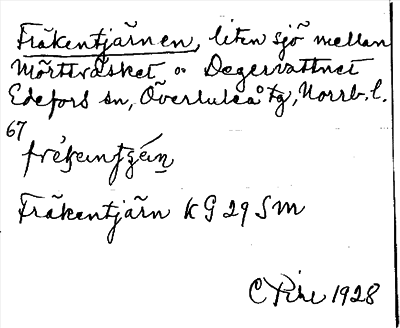 Fräkentjärnen, liten sjö mellan
Mörtträsket o. Degervattnet
Edefors sn, Överluleå tg, Norrb. l.
67
Fräkentjärn KG 29 SM
C Pihl 1928